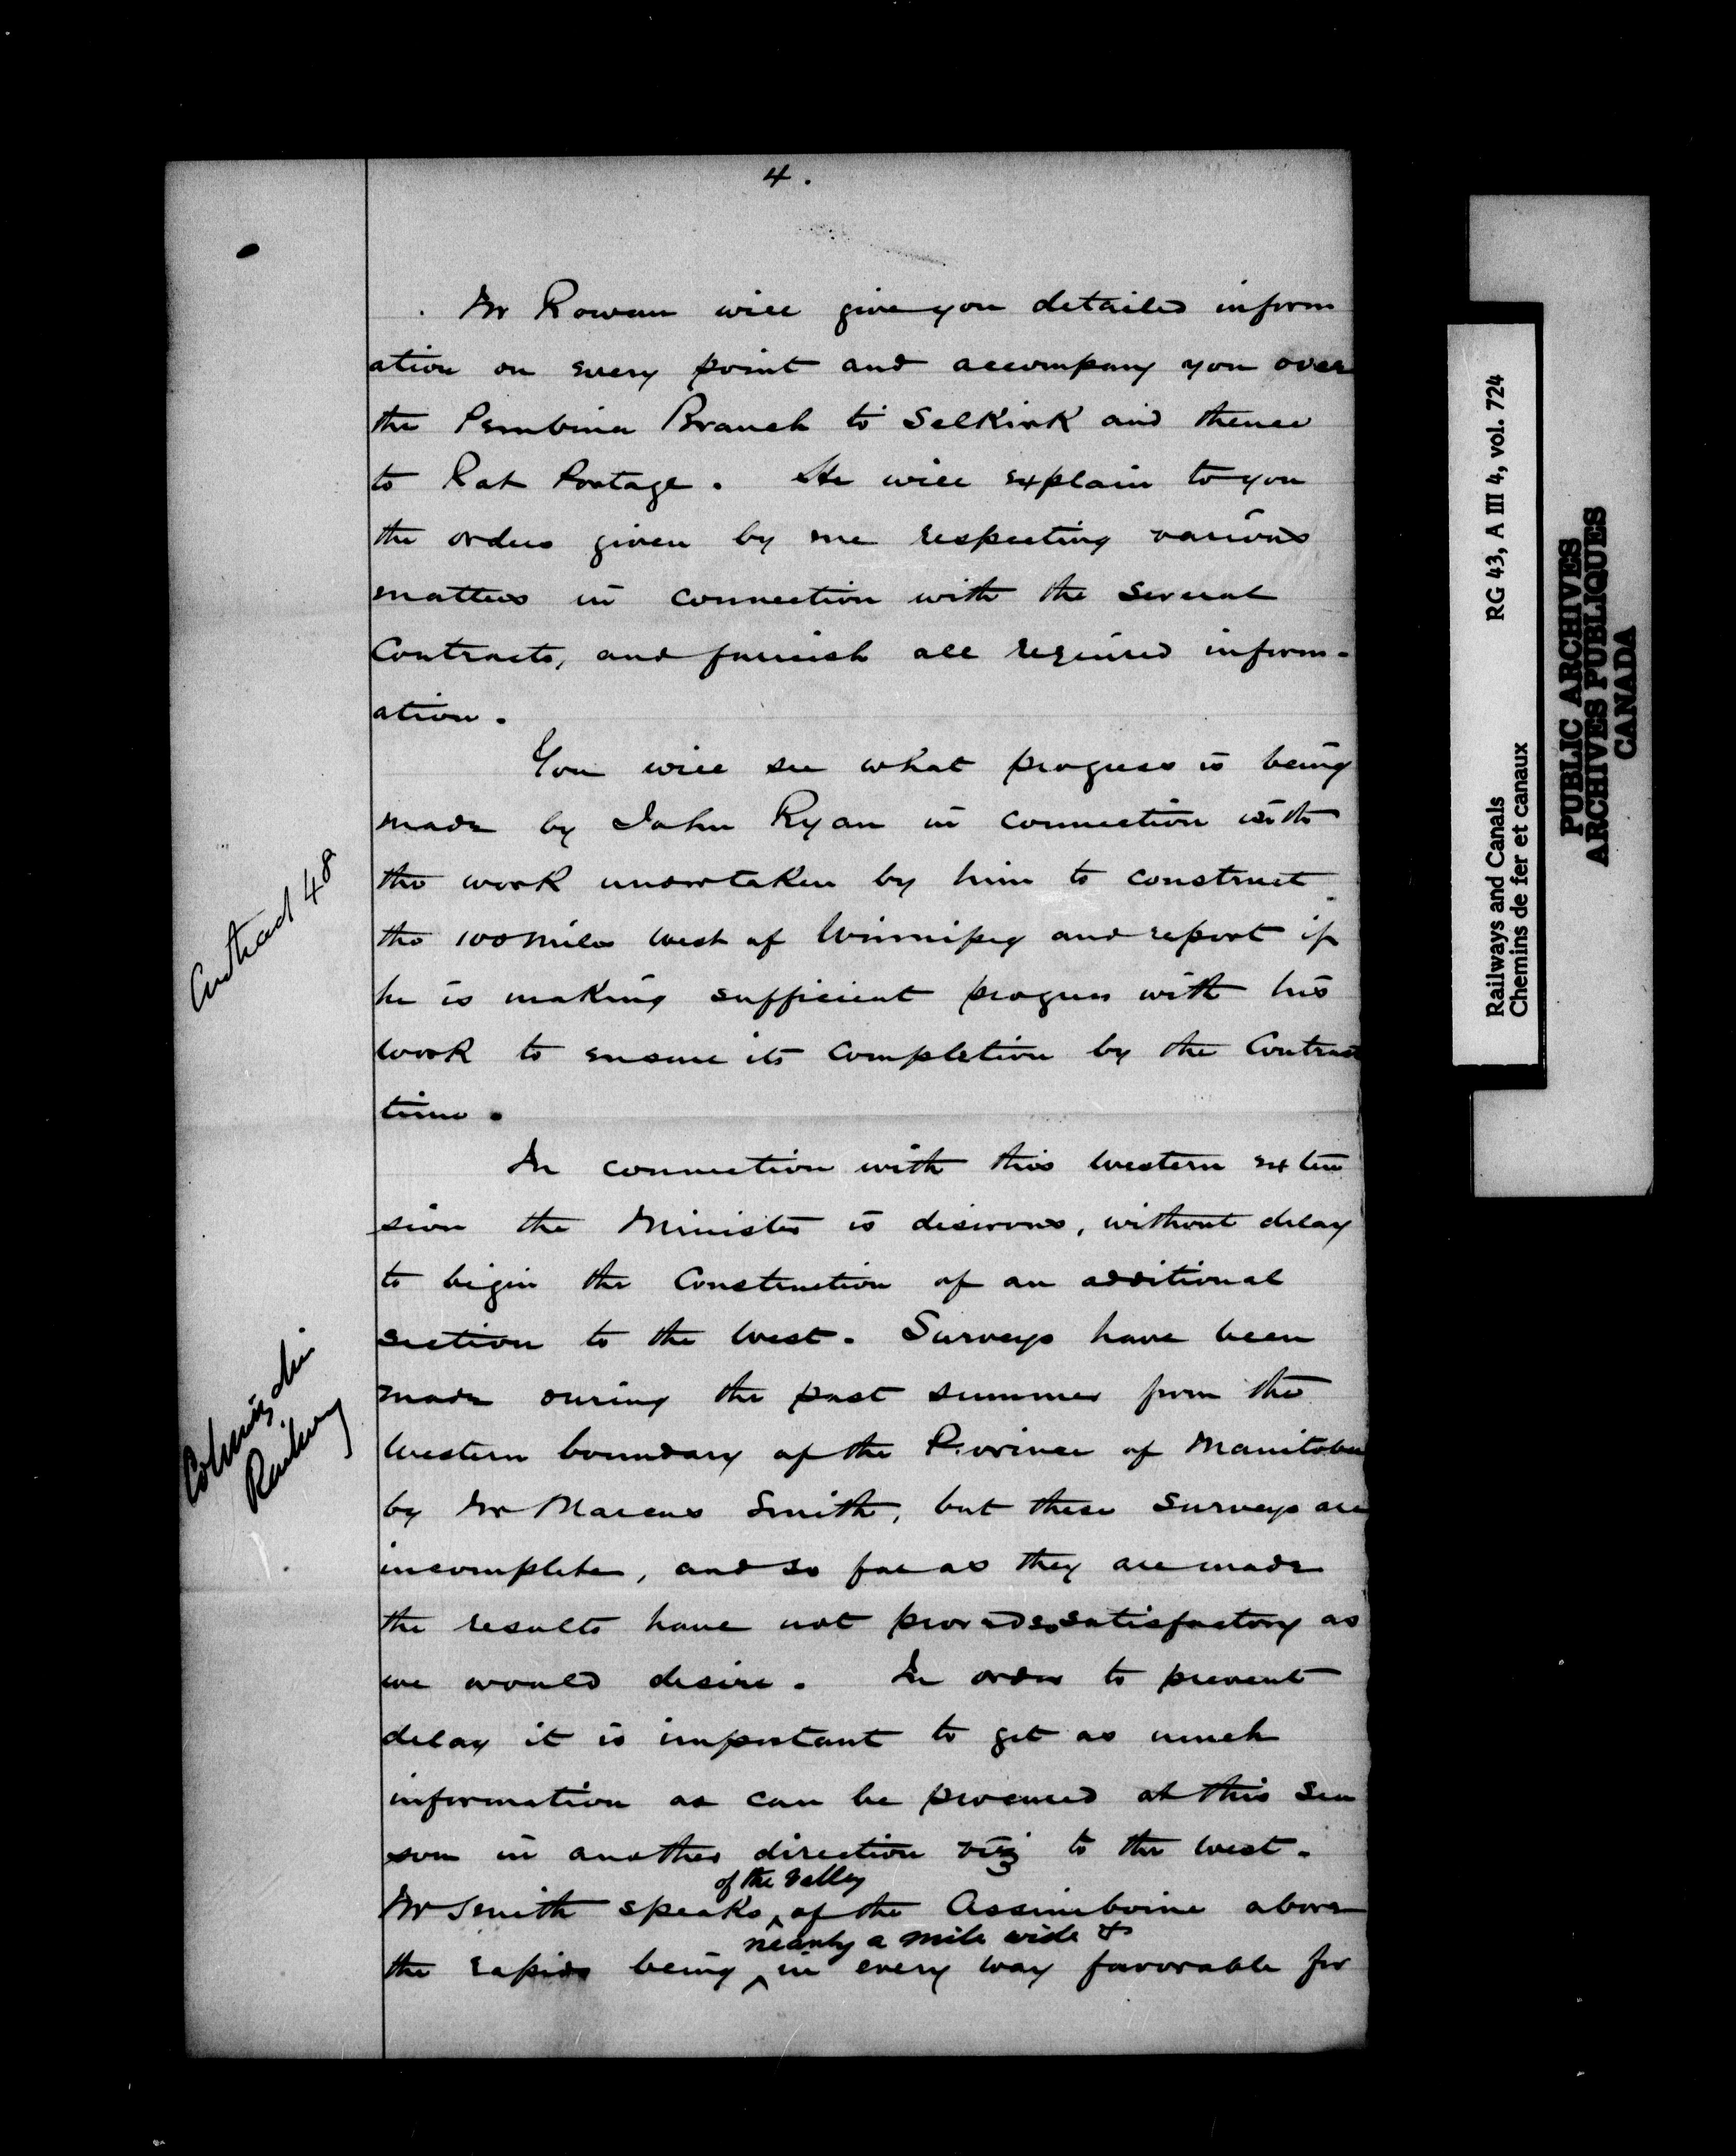 4.
Mr Rowan will give you detailed inform
ation on every point and accompany you over
the Pembina Branch to Selkirk and thence
to Rat Portage. He will explain to you
the orders given by me respecting various
matters in connection with the several
Contracts, and furnish all required inform-
ation.
You will see what progress is being
made by John Ryan in connection with
Contract 48
the work undertaken by him to construct
the 100 miles west of Winnipeg and report if
he is making sufficient progress with his
work to ensure its completion by the Contract
time.
In connection with this western exten
sion the Minister is desirous, without delay
to begin the Construction of an additional
section to the west. Surveys have been
made during the past summer from the
Railway
western boundary of the Province of Manitoba
by Mr Marcus Smith, but these surveys are
incomplete, and so far as they are made
the results have not proved so satisfactory as
we would desire. In order to prevent
delay it is important to get as much
information as can be procured at this sea
son in another direction viz to the west.
of the valley
Mr Smith speaks of the Assiniboine above
nearly a mile wide &
the rapids being in every way favorable for
Railways and Canals RG 43, A III 4, vol. 724
Chemins de fer et canaux
PUBLIC ARCHIVES
ARCHIVES PUBLIQUES
CANADA